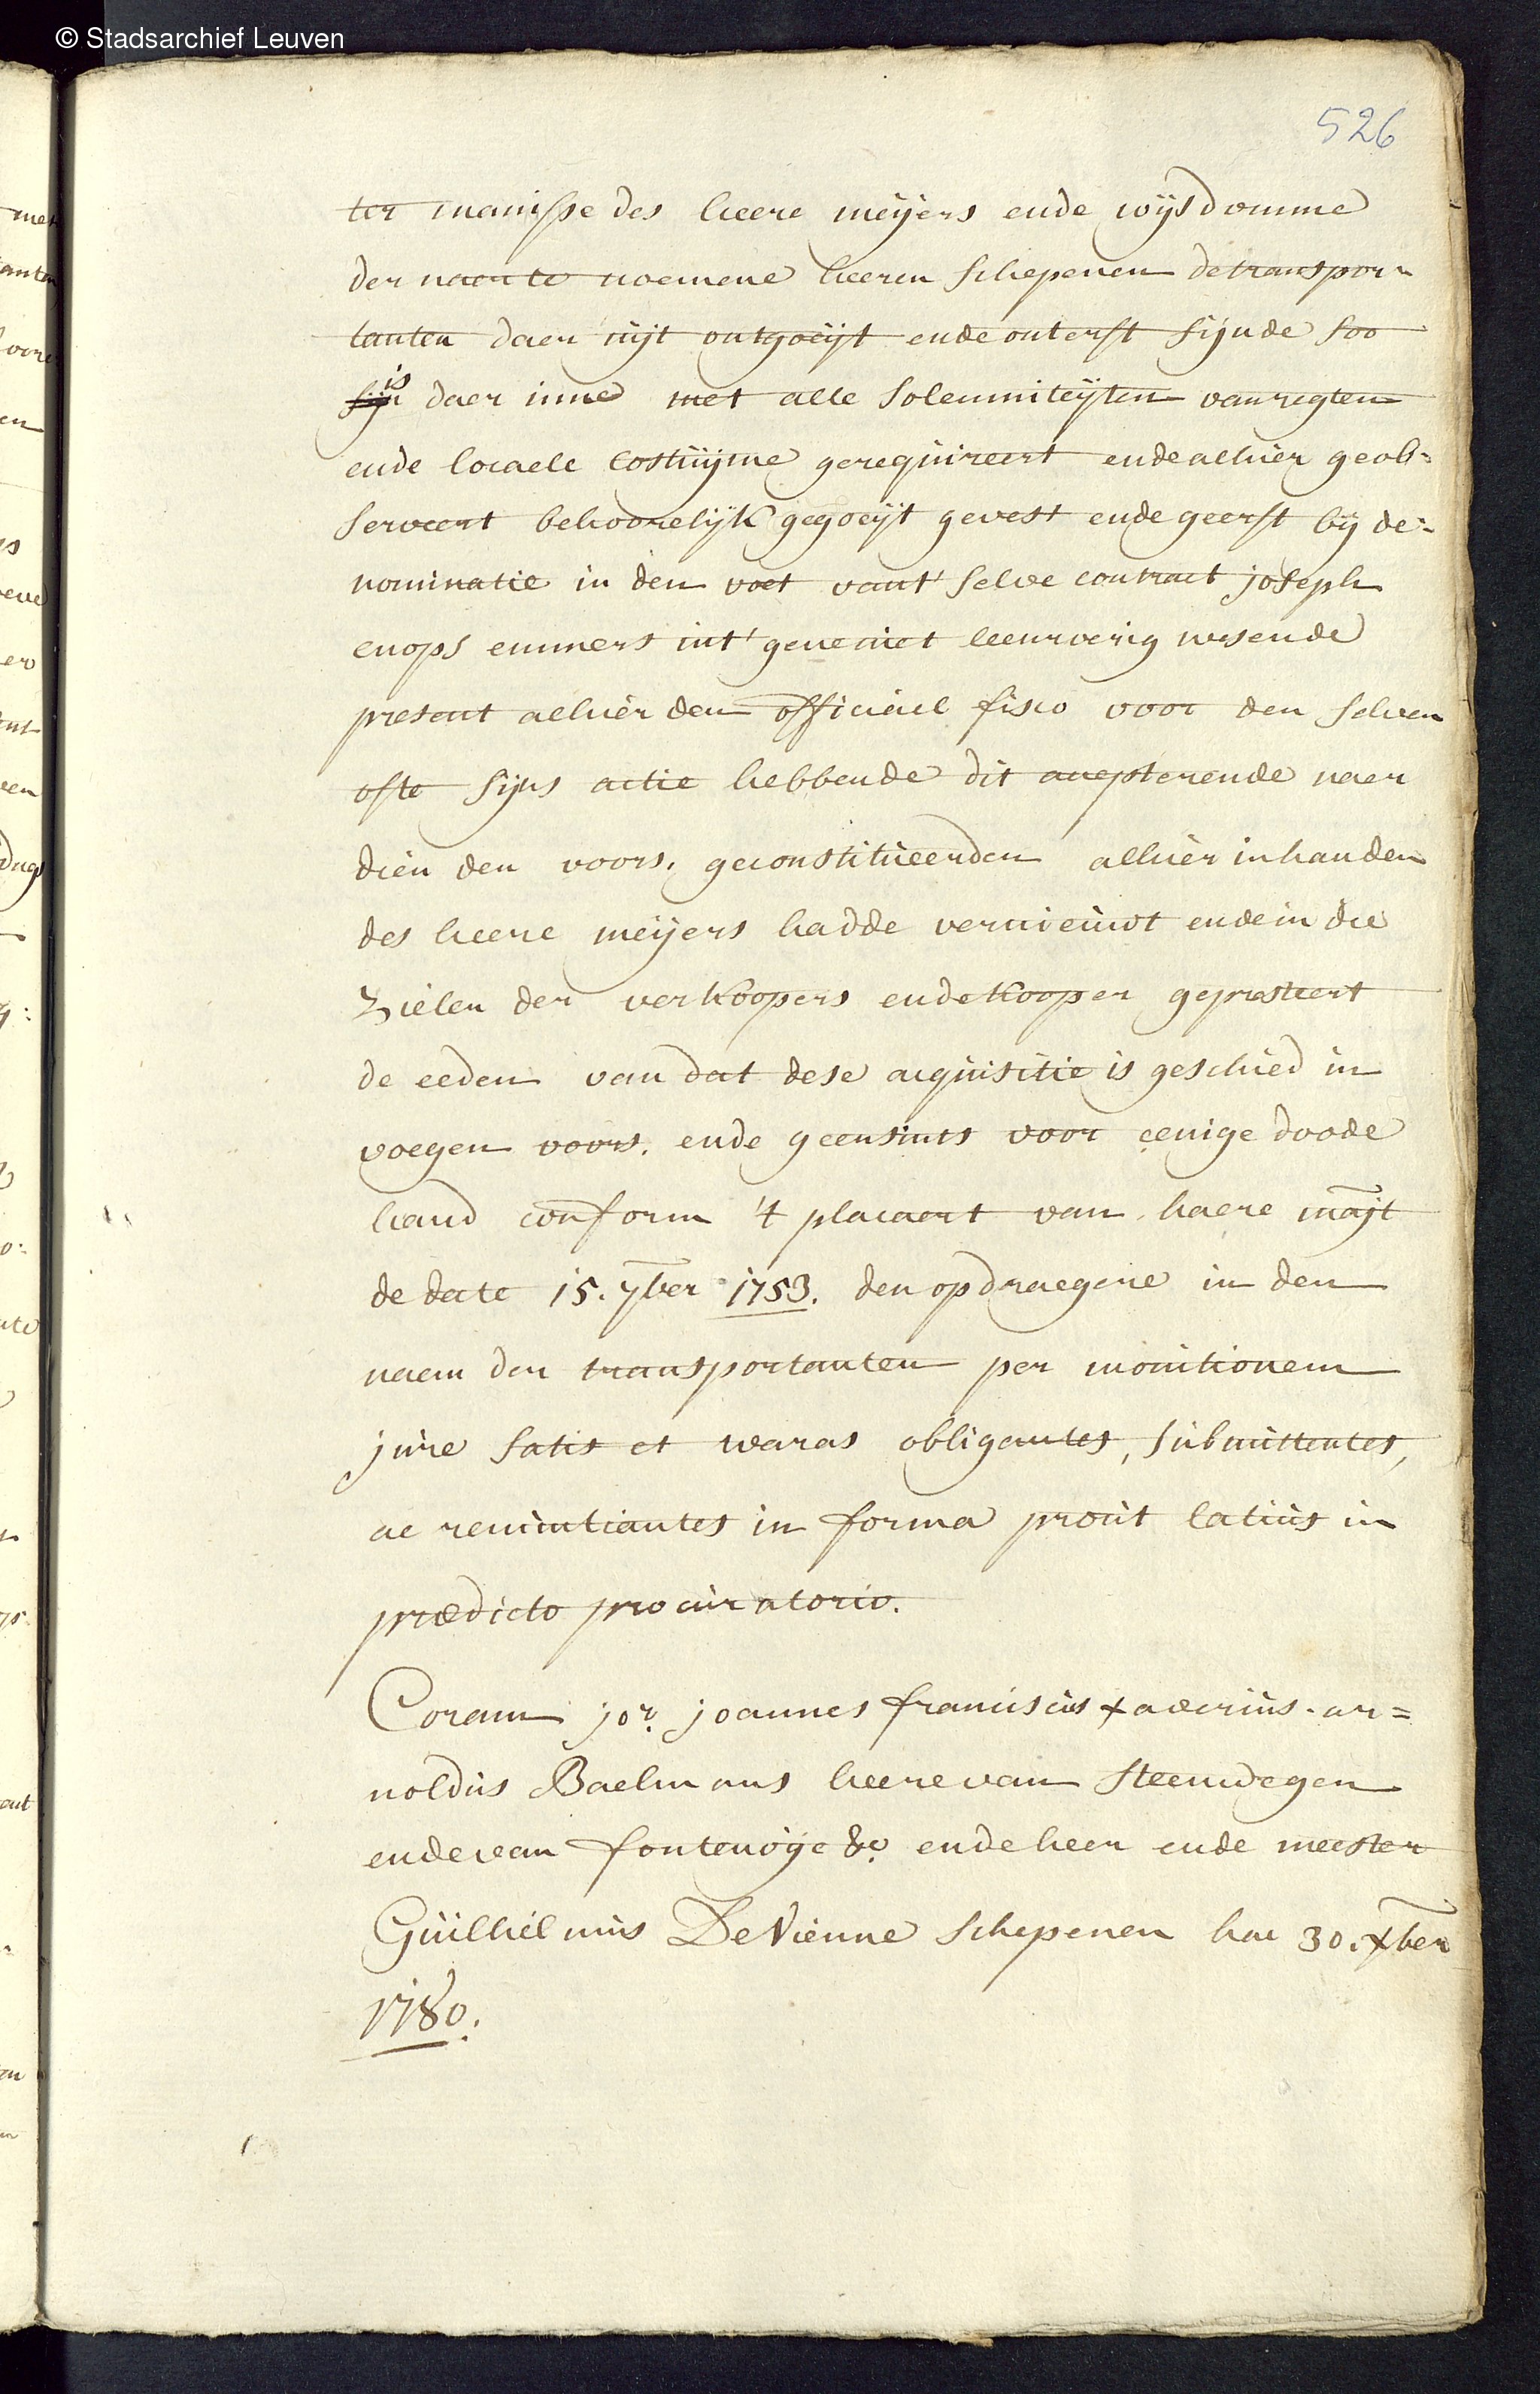 © Stadsarchief Leuven
526
ter manisse des heere meÿers ende wÿsdomme
der naer te noemene heeren schepenen de transpor=
tanten daer uÿt ontgoeÿt ende onterft sÿnde soo
is
daer inne met alle solemniteÿten van regten
ende locaele costuÿme gerequireert ende alhier geob=
serveert behoorelÿk gegoeÿt gevest ende geerft bÿ de=
nominatie in den voet vant' selve contract joseph
enops emmers int' gene niet leenroerig wesende
present alhier den officiael fisco voor den selven
ofte sÿns actie hebbende dit accepterende naer
dien den voors. geconstitueerden alhier in handen
des heere meÿers hadde vernieuwt ende in die
zielen der verkoopers ende kooper gepresteert
de eeden van dat dese acquisitie is geschied in
voegen voors. ende geensints voor eenige doode
hand conform 't placaert van haere maÿt
de date 15. 7ber 1753. den opdraegere in den
naem der transportanten per monitionem
jure satis et waras obligantes, submittentes,
ac renuntiantes in forma prout latius in
prædicto procuratorio.
Coram jor. joannes franciscus xaverius ar=
noldus Baelmans heere van steenwegen
ende van fontenoÿe &c. ende heer ende meester
Guilliélmus De Vienne schepenen hac 30. xber
1780.